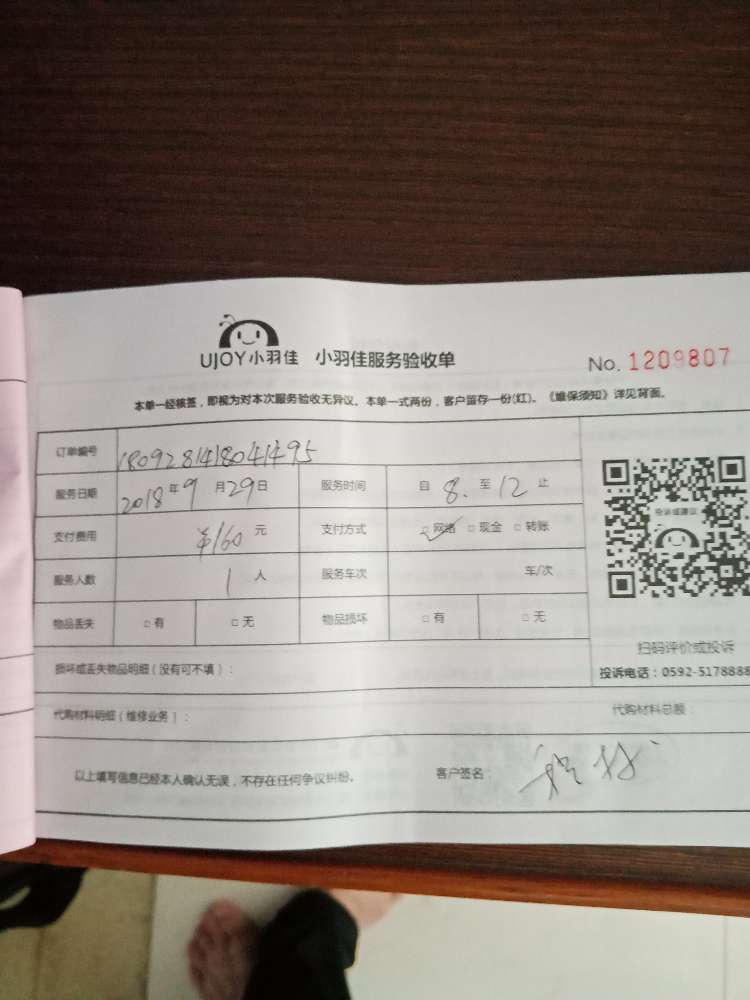 UJOY小羽佳 小羽佳服务验收单 No. 1209807
本单一经核签，即视为对本次服务验收无异议。本单一式两份，客户留存一份(红)。《维保须知》详见背面。
订单编号 180928141804495
服务日期 2018年9月29日 服务时间 自 8. 至 12 止
支付费用 ¥160 元 支付方式 □网络 □现金 □转账
服务人数 1 人 服务车次 车/次
物品丢失 □有 □无 物品损坏 □有 □无
投诉或建议
扫码评价或投诉
投诉电话：0592-5178888
损坏或丢失物品明细（没有可不填）：
代购材料明细（维修业务）： 代购材料总额：
以上填写信息已经本人确认无误，不存在任何争议纠纷。 客户签名：